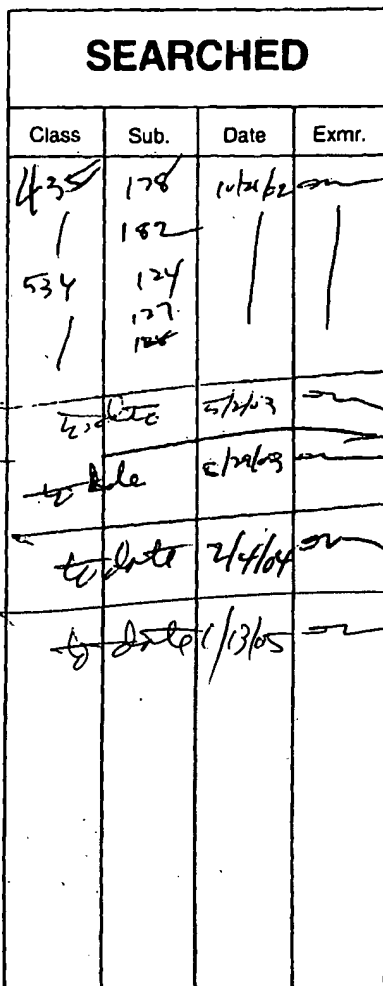 SEARCHED
Class Sub. Date Exmr.
435 178
/ 182
534 124
127
/ 128
to date 5/2/03
to date
to date 2/4/04
to date 1/13/05